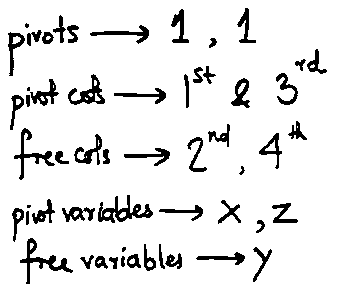 pivots → 1, 1
pivot cols → 1st & 3rd
free cols → 2nd, 4th
pivot variables → x, z
free variables → y